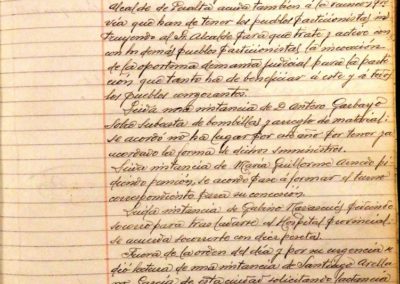 Alcalde de Peralta acuda tambien á la reunion pre-
via que han de tener los pueblos participionistas, ins-
truyendo al Sr. Alcalde para que trate y active con
con los demás pueblos participionistas la incoación
de la oportuna demanda judicial para la parti-
ción que tanto ha de beneficiar á éste y á todos
los pueblos congozantes.
Leida una instancia de D. Antero Garbayo
sobre subasta de bombillas y arreglo de material:
se acordó no ha lugar por este año por tener ya
acordado la forma de dichos suministros.
Leida instancia de María Guillermo Arnedo pi-
diendo pensión, se acordó pase á formar el turno
correspondiente para su concesión.
Leida instancia de Gabino Navascués pidiendo
socorro para trasladarse al Hospital provincial
se acuerda socorrerle con diez pesetas.
Fuera de la orden del dia y por su urgencia se
dió lectura de una instancia de Santiago Arella-
no de esta ciudad solicitando lactancia